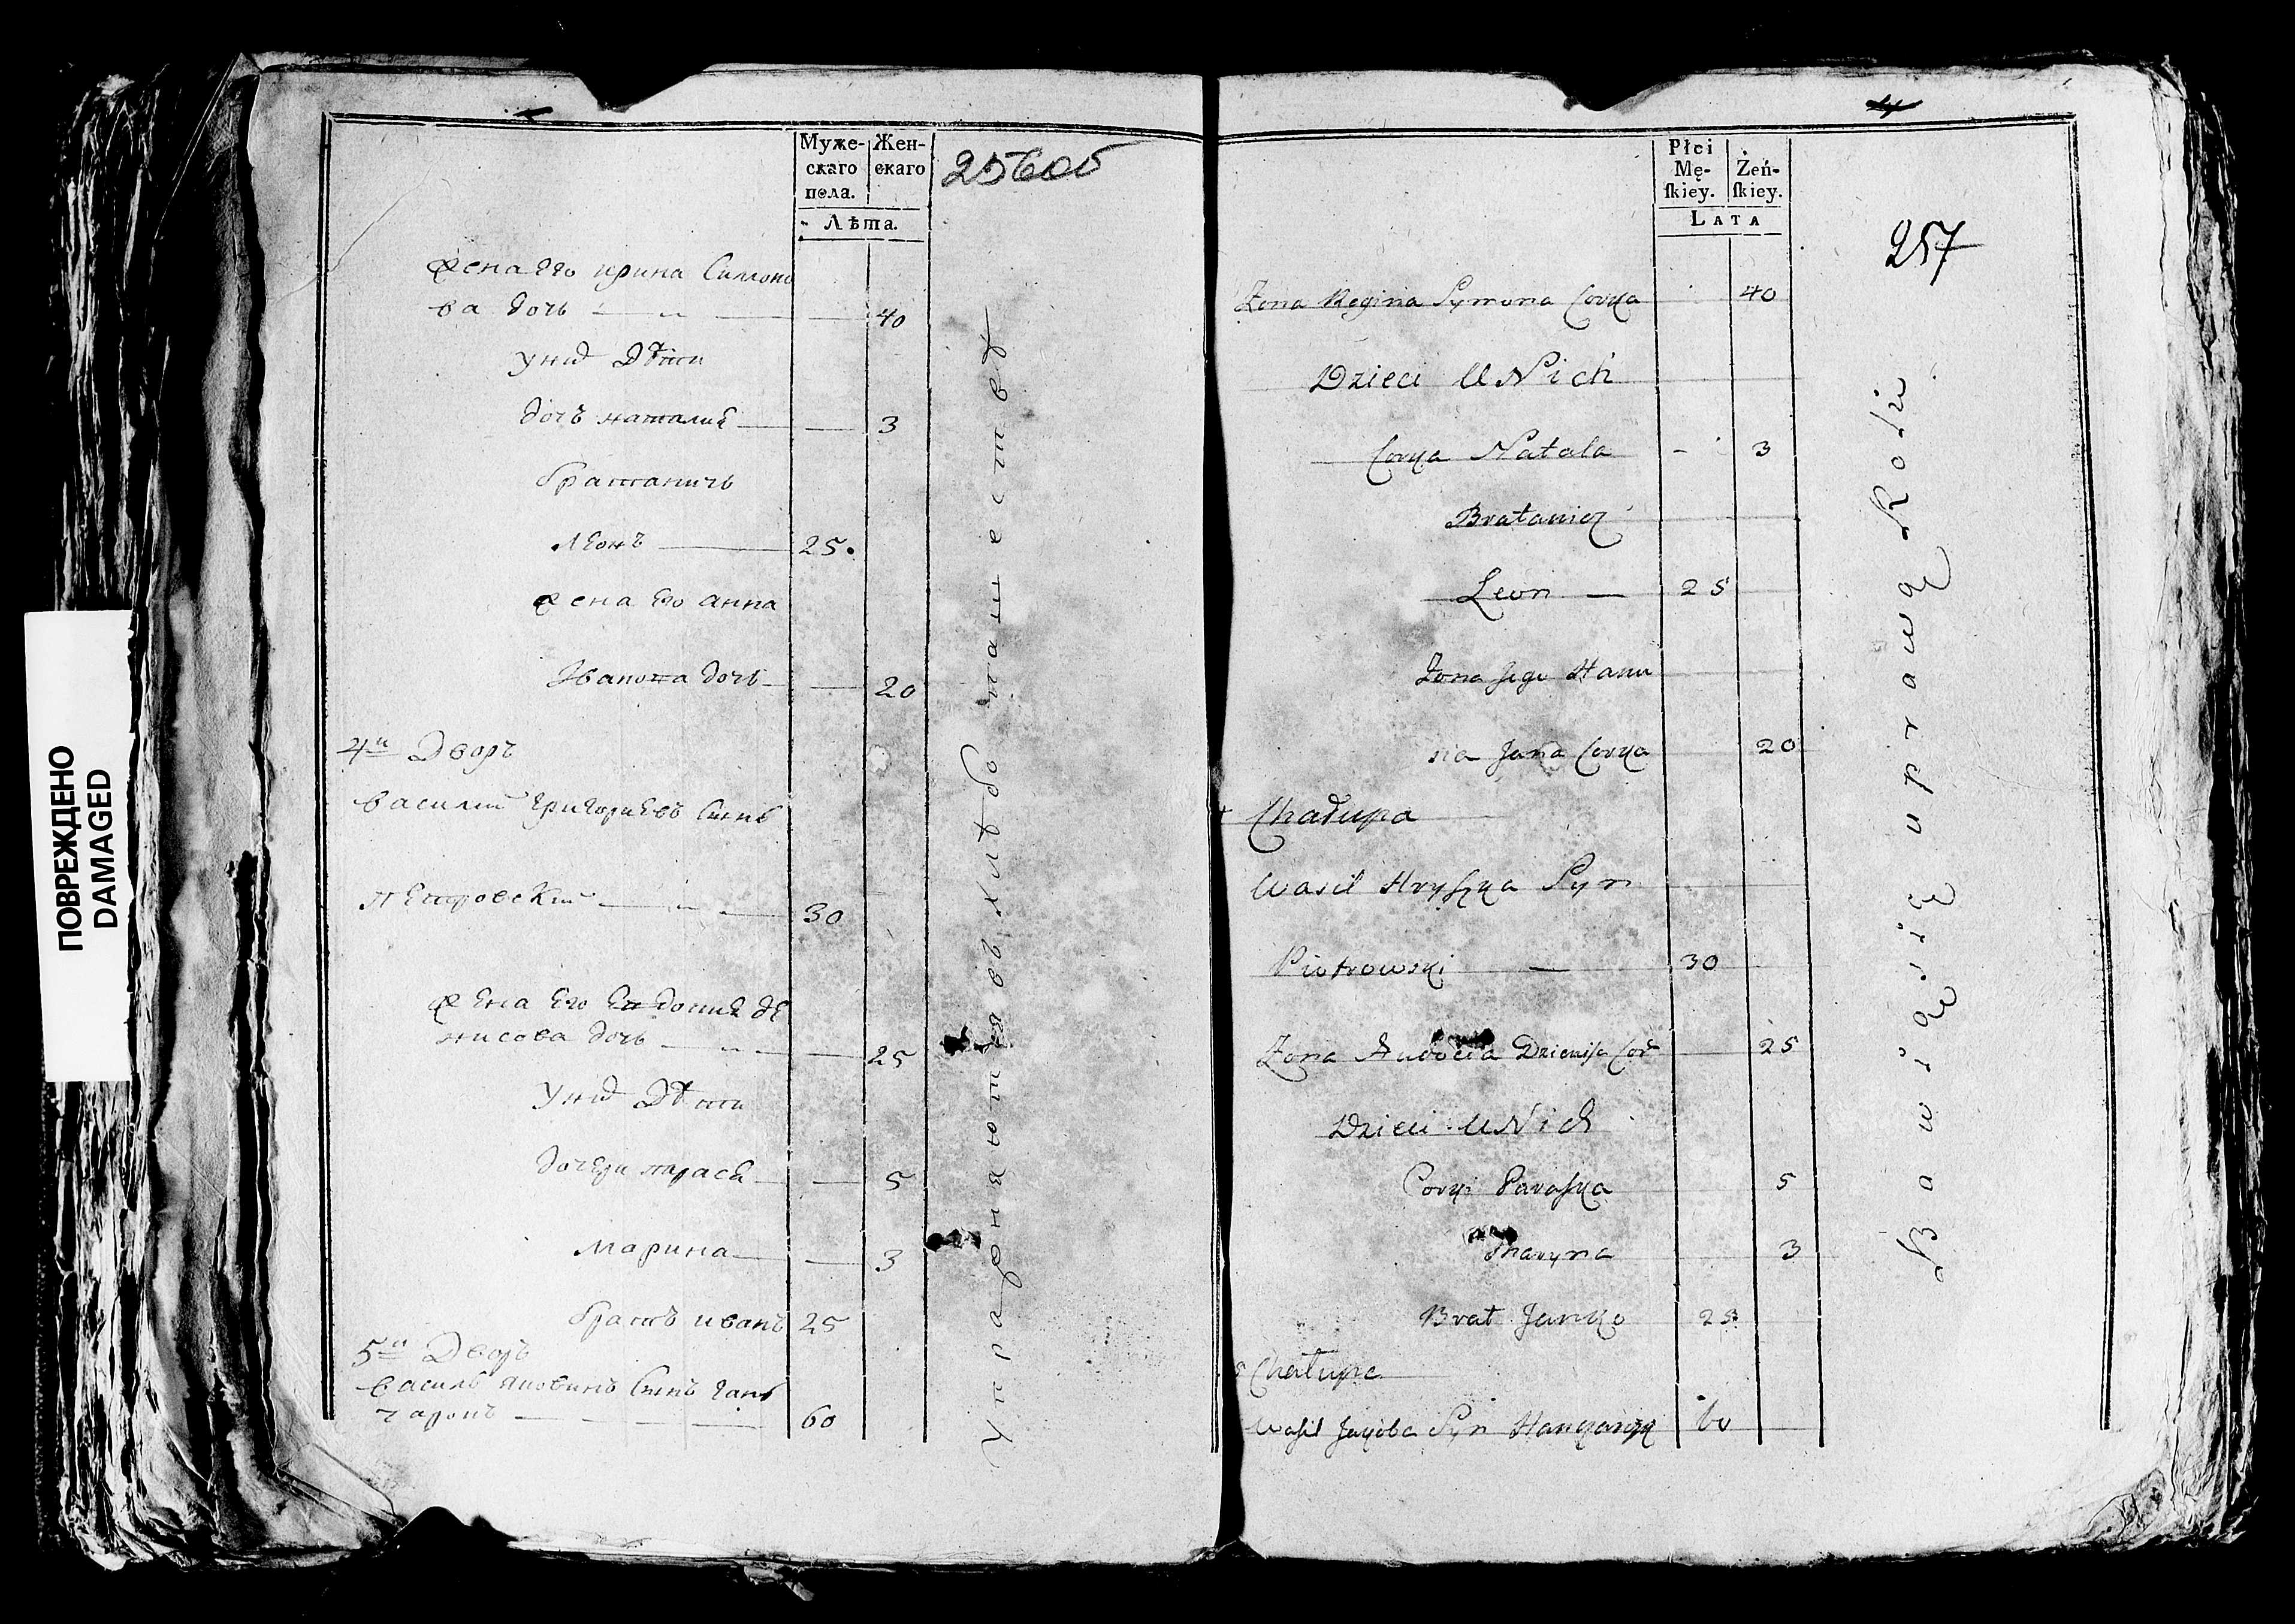 ПОВРЕЖДЕНО
DAMAGED
Муже-
скаго
пола.
Жен-
скаго
Лѣта.
256об
жена его ирина Симоно
ва дочь 40
у нихъ Дѣти
дочь наталия 3
братаничь
леонъ 25.
жена его анна
Иванова дочь 20
4й Дворъ
василий григориевъ сынъ
петровский 30
жена его евдокия де
нисова дочь 25
у нихъ Дѣти
дочери параска 5
марина 3
братъ иванъ 25
5й Дворъ
василь яковинъ сынъ ганъ
чаронъ 60
Упражняются в хлѣбо пашествѣ
Płci
Mę-
ſkiey.
Żeń-
ſkiey.
LATA
257
Zona Regina Symona Corka 40
Dzieci U Nich
Corka Natala 3
Bratanicz
Leon 25
Zona Jego Hanu
sia Jana Corka 20
Chałupa
Wasil Hryszka Syn
Piotrowski 30
Zona Audocia Dzienisa Cor 25
Dzieci U Nich
Corki Paraska 5
Maryna 3
Brat Janko 25
5 Chałupa
Wasil Jakoba Syn 60
Bawią się uprawą Roli